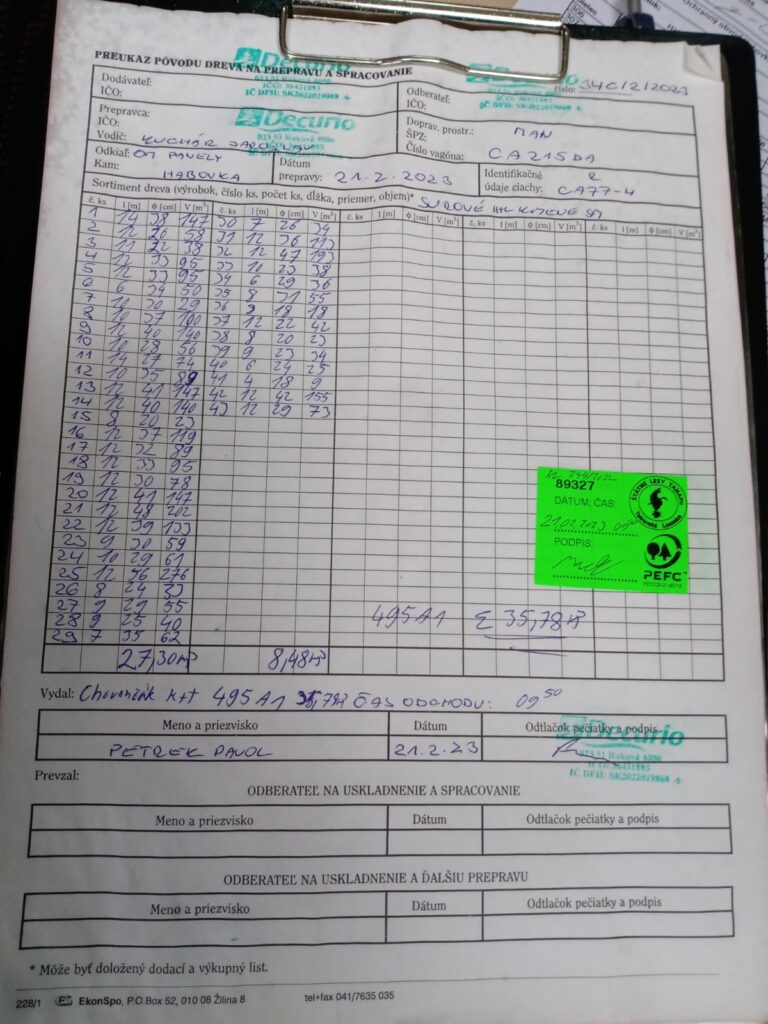 PREUKAZ PÔVODU DREVA NA PREPRAVU A SPRACOVANIE
Decurio
IČO: 36431893
IČ DPH: SK2022019868
Dodávateľ:
IČO:
Odberateľ:
IČO:
číslo: 340/2/2023
Prepravca:
IČO:
Decurio
023 51 Raková 4000
Vodič: KUCHÁR JAROSLAV
Doprav. prostr.: MAN
ŠPZ:
Číslo vagóna: CA215DA
Odkiaľ: OM PAVELY
Kam: HABOVKA
Dátum prepravy: 21.2.2023
Identifikačné údaje ciachy: CA77-4
Sortiment dreva (výrobok, číslo ks, počet ks, dĺžka, priemer, objem)* SUROVÉ IHL KMENE
č. ks l [m] ϕ [cm] V [m³] č. ks l [m] ϕ [cm] V [m³] č. ks l [m] ϕ [cm] V [m³] č. ks l [m] ϕ [cm] V [m³] č. ks l [m] ϕ [cm] V [m³]
1 14 38 147 30 7 26 34
2 12 26 58 31 12 36 113
3 11 32 78 32 12 47 193
4 12 33 95 33 10 23 38
5 12 33 95 34 6 29 36
6 6 34 50 35 8 31 55
7 10 30 29 36 18 18
8 10 37 100 37 12 22 42
9 12 40 140 38 8 20 23
10 10 28 56 39 9 23 34
11 14 27 74 40 6 24 25
12 10 35 89 41 4 18 9
13 12 41 147 42 12 42 155
14 12 40 140 43 12 29 73
15 8 20 23
16 12 37 119
17 12 32 89
18 12 33 95
19 12 30 78
20 12 41 147
21 12 48 202
22 12 39 133
23 9 30 59
24 10 29 61
25 12 56 276
26 8 24 33
27 9 29 55
28 9 25 40
29 7 35 62
27,30m³ 8,48m³
495A1 Σ 35,78m³
89327
DÁTUM, ČAS:
PODPIS:
ŠTÁTNE LESY TANAPU
Tatranská Lomnica
PEFC
Vydal: 495A1 35,78 ČAS ODCHODU: 09⁵⁰
Meno a priezvisko Dátum Odtlačok pečiatky a podpis
PETREK PAVOL 21.2.23
Decurio
023 51 Raková 4000
IČO: 36431893
IČ DPH: SK2022019868
Prevzal:
ODBERATEĽ NA USKLADNENIE A SPRACOVANIE
Meno a priezvisko Dátum Odtlačok pečiatky a podpis
ODBERATEĽ NA USKLADNENIE A ĎALŠIU PREPRAVU
Meno a priezvisko Dátum Odtlačok pečiatky a podpis
* Môže byť doložený dodací a výkupný list.
228/1 EkonSpo, P.O.Box 52, 010 08 Žilina 8 tel+fax 041/7635 035